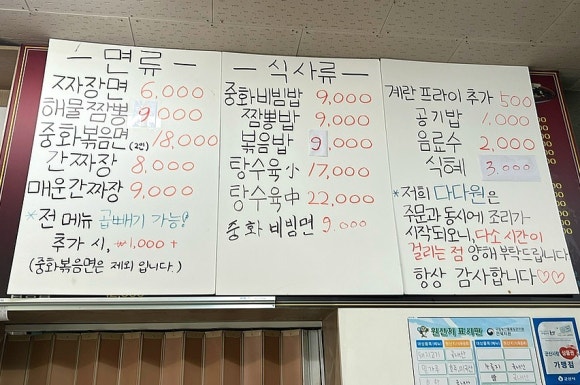 - 면류 -
짜장면 6,000
해물짬뽕 9,000
중화볶음면(2인) 18,000
간짜장 8,000
매운간짜장 9,000
*전 메뉴 곱빼기 가능!
추가 시, ₩1,000 +
(중화볶음면은 제외 입니다.)
- 식사류 -
중화비빔밥 9,000
짬뽕밥 9,000
볶음밥 9,000
탕수육 小 17,000
탕수육 中 22,000
중화 비빔면 9,000
계란 프라이 추가 500
공기밥 1,000
음료수 2,000
식혜 3,000
*저희 다다원은
주문과 동시에 조리가
시작되오니, 다소 시간이
걸리는 점 양해 부탁드립니다
항상 감사합니다♡♡
원산지 표시판
가맹점